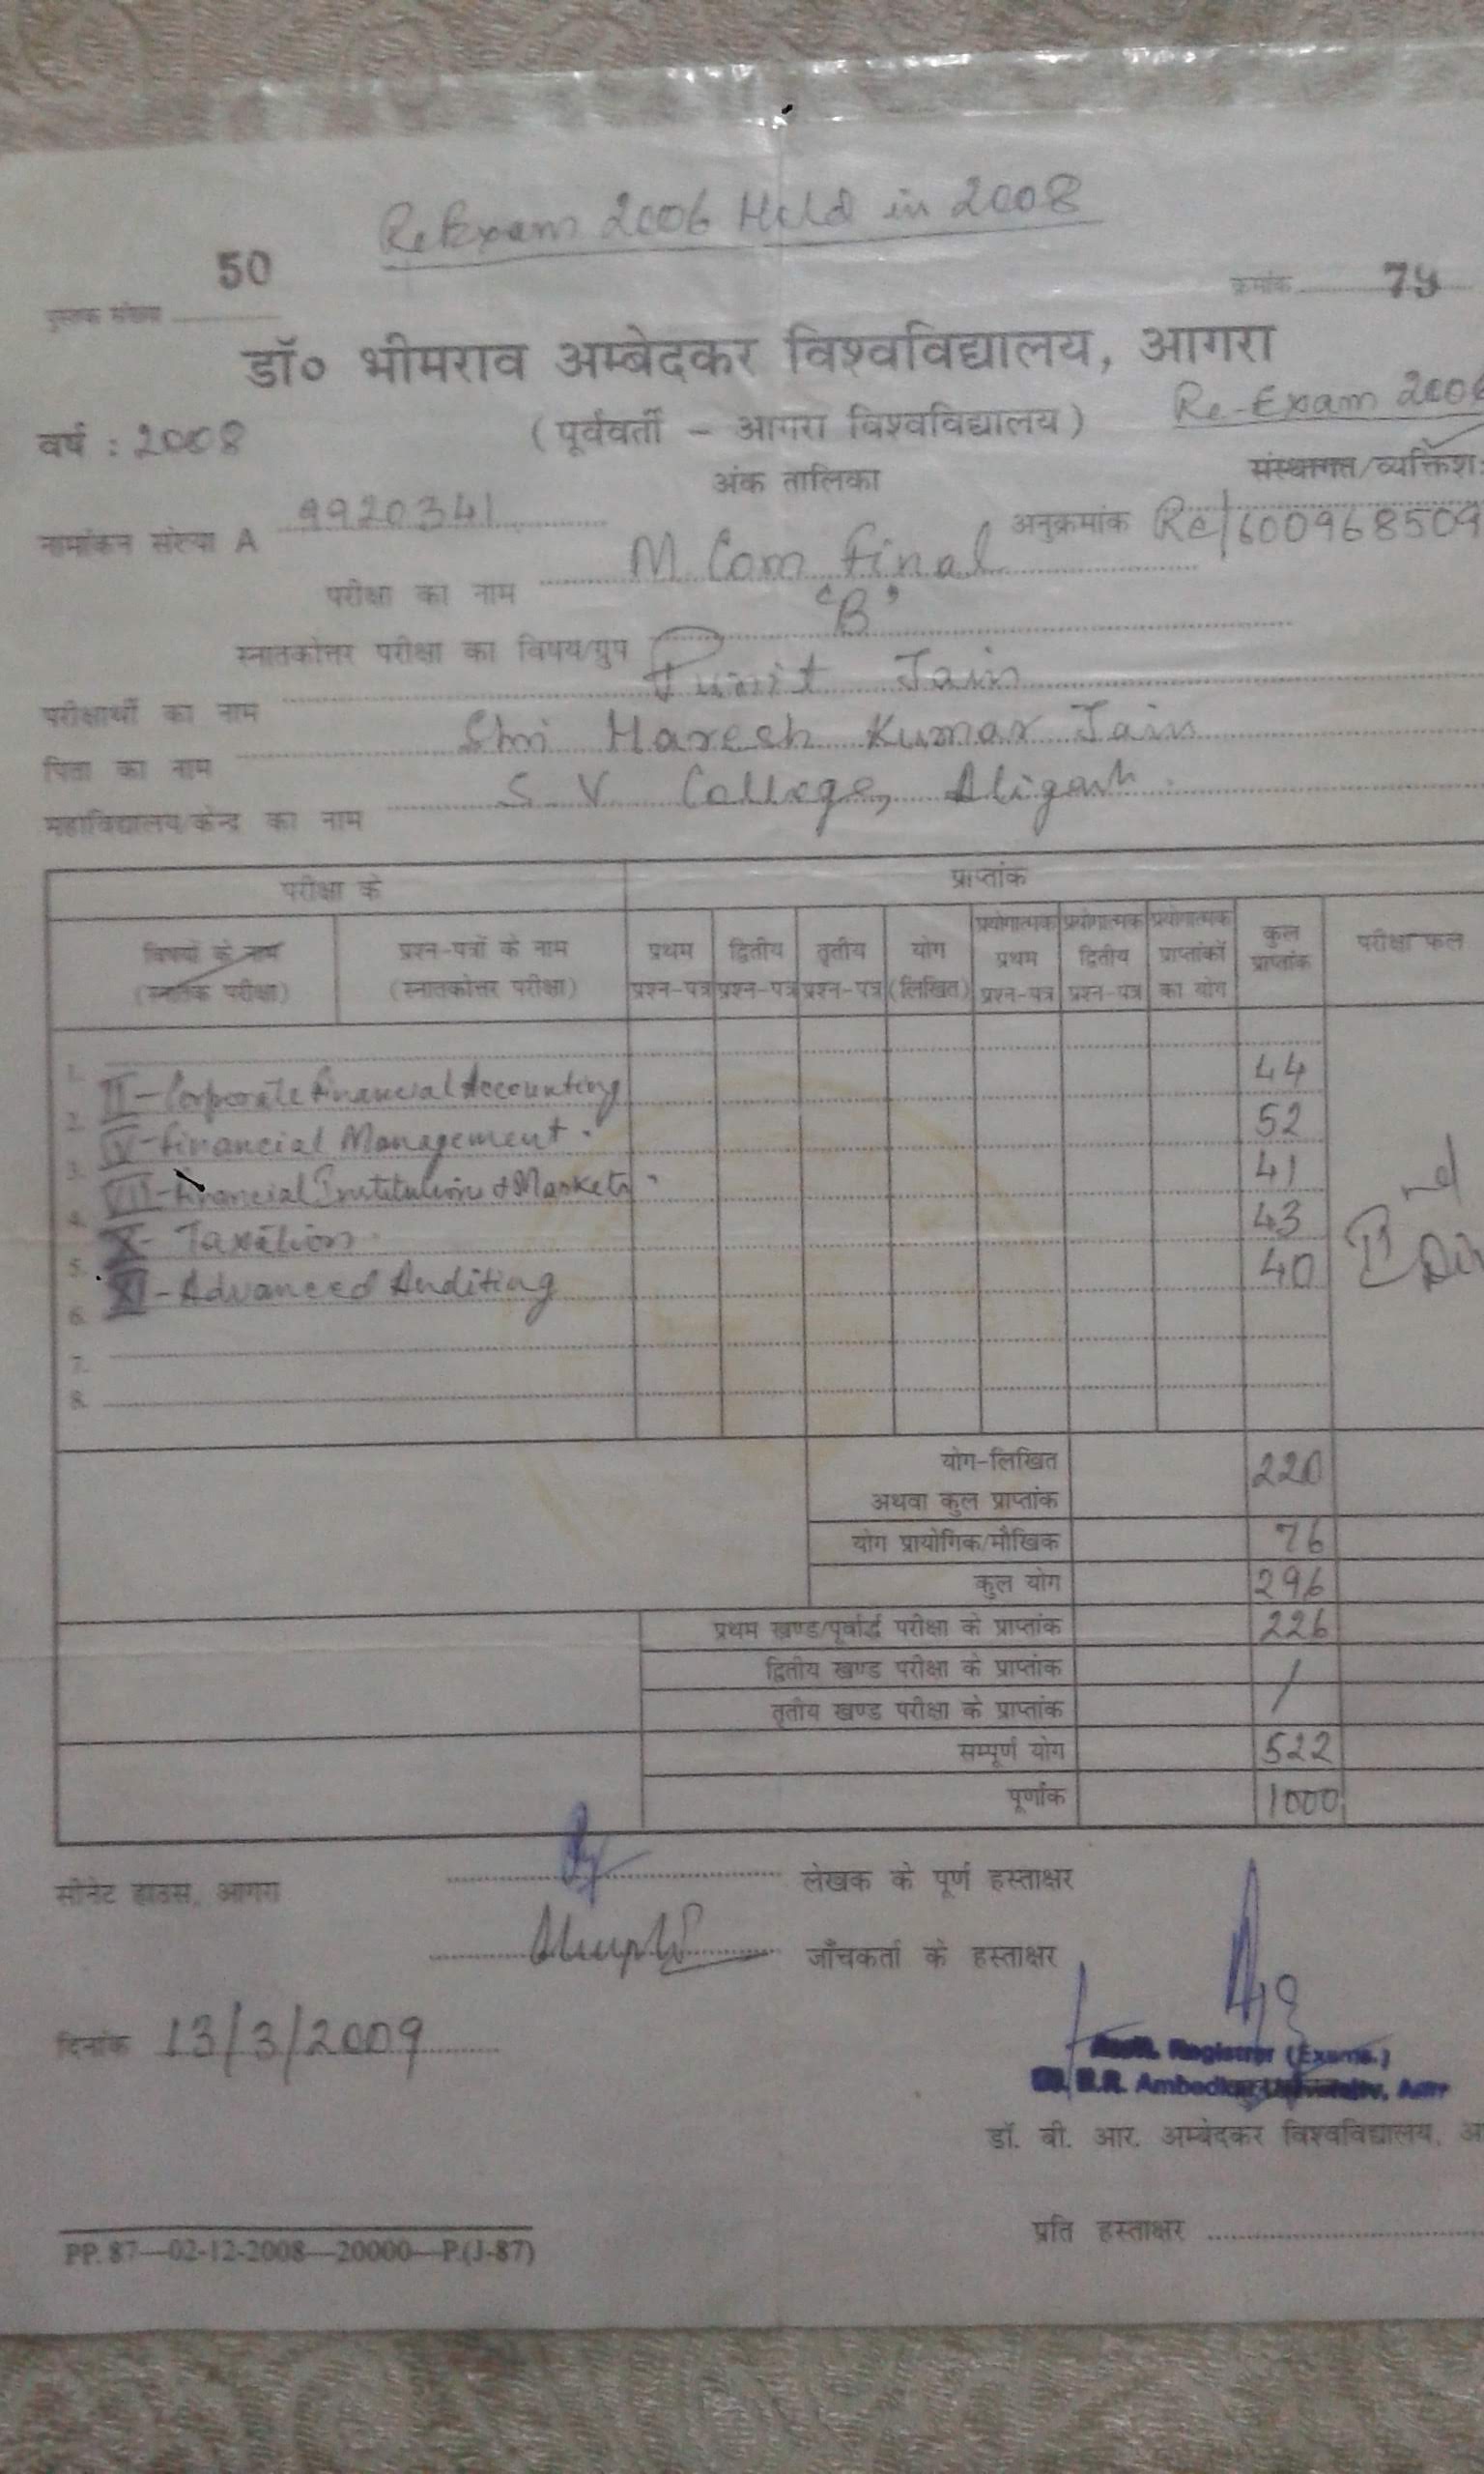 Re Exam 2006 Held in 2008
50
पुस्तक संख्या
क्रमांक 79
डॉ० भीमराव अम्बेदकर विश्वविद्यालय, आगरा
Re-Exam 2006
वर्ष : 2008
(पूर्ववर्ती - आगरा विश्वविद्यालय)
संस्थागत/व्यक्तिश:
अंक तालिका
नामांकन संख्या A 9920341
अनुक्रमांक Re/600968509
परीक्षा का नाम M Com Final
स्नातकोत्तर परीक्षा का विषय/ग्रुप 'B'
परीक्षार्थी का नाम Punit Jain
पिता का नाम Shri Naresh Kumar Jain
महाविद्यालय/केन्द्र का नाम S V College, Aligarh
परीक्षा के
प्राप्तांक
विषयों के नाम (स्नातक परीक्षा)
प्रश्न-पत्रों के नाम (स्नातकोत्तर परीक्षा)
प्रथम प्रश्न-पत्र
द्वितीय प्रश्न-पत्र
तृतीय प्रश्न-पत्र
योग (लिखित)
प्रयोगात्मक प्रथम प्रश्न-पत्र
प्रयोगात्मक द्वितीय प्रश्न-पत्र
प्रयोगात्मक प्राप्तांकों का योग
कुल प्राप्तांक
परीक्षा फल
1.
2. II - Corporate Financial Accounting 44
3. V - Financial Management 52
4. VII - Financial Institutions & Markets 41
5. X - Taxation 43
6. XI - Advanced Auditing 40
IInd Div
7.
8.
योग-लिखित
अथवा कुल प्राप्तांक 220
योग प्रायोगिक/मौखिक 76
कुल योग 296
प्रथम खण्ड/पूर्वार्द्ध परीक्षा के प्राप्तांक 226
द्वितीय खण्ड परीक्षा के प्राप्तांक /
तृतीय खण्ड परीक्षा के प्राप्तांक
सम्पूर्ण योग 522
पूर्णांक 1000
सीनेट हाउस, आगरा
लेखक के पूर्ण हस्ताक्षर
जाँचकर्ता के हस्ताक्षर
दिनांक 13/3/2009
Registrar (Exams.)
B.R. Ambedkar University,
डॉ. बी. आर. अम्बेदकर विश्वविद्यालय,
प्रति हस्ताक्षर
PP. 87—02-12-2008—20000—P.(J-87)